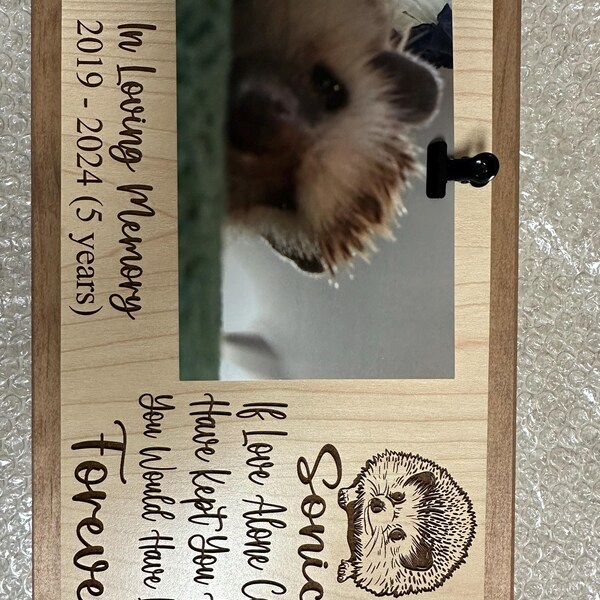 In Loving Memory
2019 - 2024 (5 years)
Sonic
If Love Alone C
Have Kept You
You Would Have
Foreve